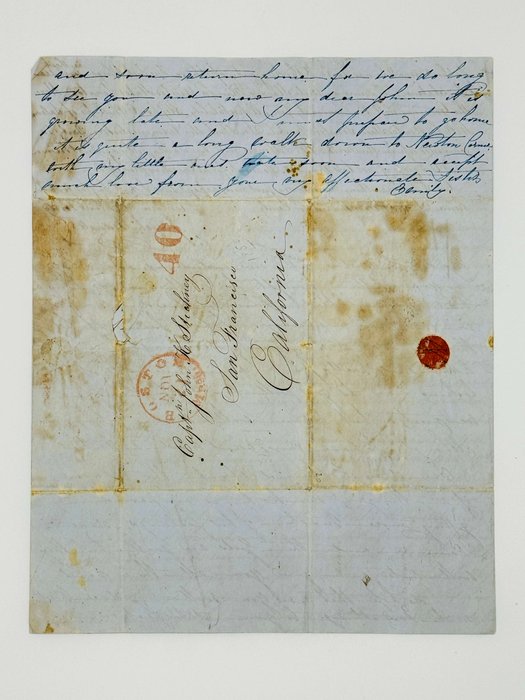 and soon return home for we do long
to see you and now my dear John it is
growing late and I must prepare to go home
it is quite a long walk down to Newton Corner
with my little ones write soon and accept
much love from your very affectionate Sister
Emily.
40
BOSTON
Captn John H
San Francisco
California.